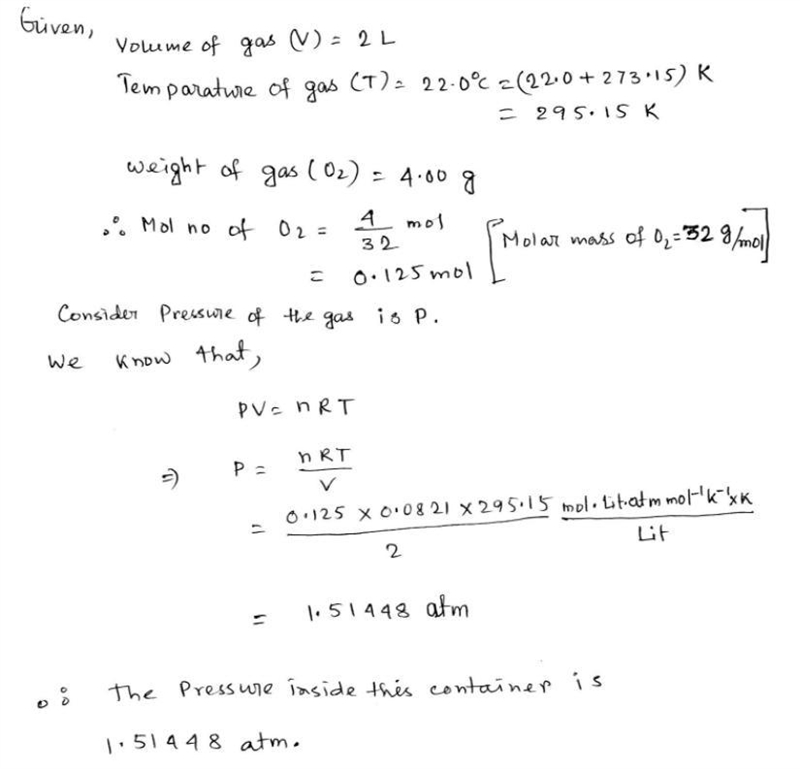 Given,
Volume of gas (V) = 2 L
Temparature of gas (T) = 22.0°C = (22.0 + 273.15) K
= 295.15 K
Weight of gas (O₂) = 4.00 g
∴ Mol no of O₂ = 4/32 mol [Molar mass of O₂ = 32 g/mol]
= 0.125 mol
Consider Pressure of the gas is P.
We know that,
PV = nRT
⇒ P = nRT/V
= 0.125 × 0.0821 × 295.15 / 2 mol. Lit.atm mol⁻¹ k⁻¹ × K / Lit
= 1.51448 atm
∴ The Pressure inside this container is
1.51448 atm.